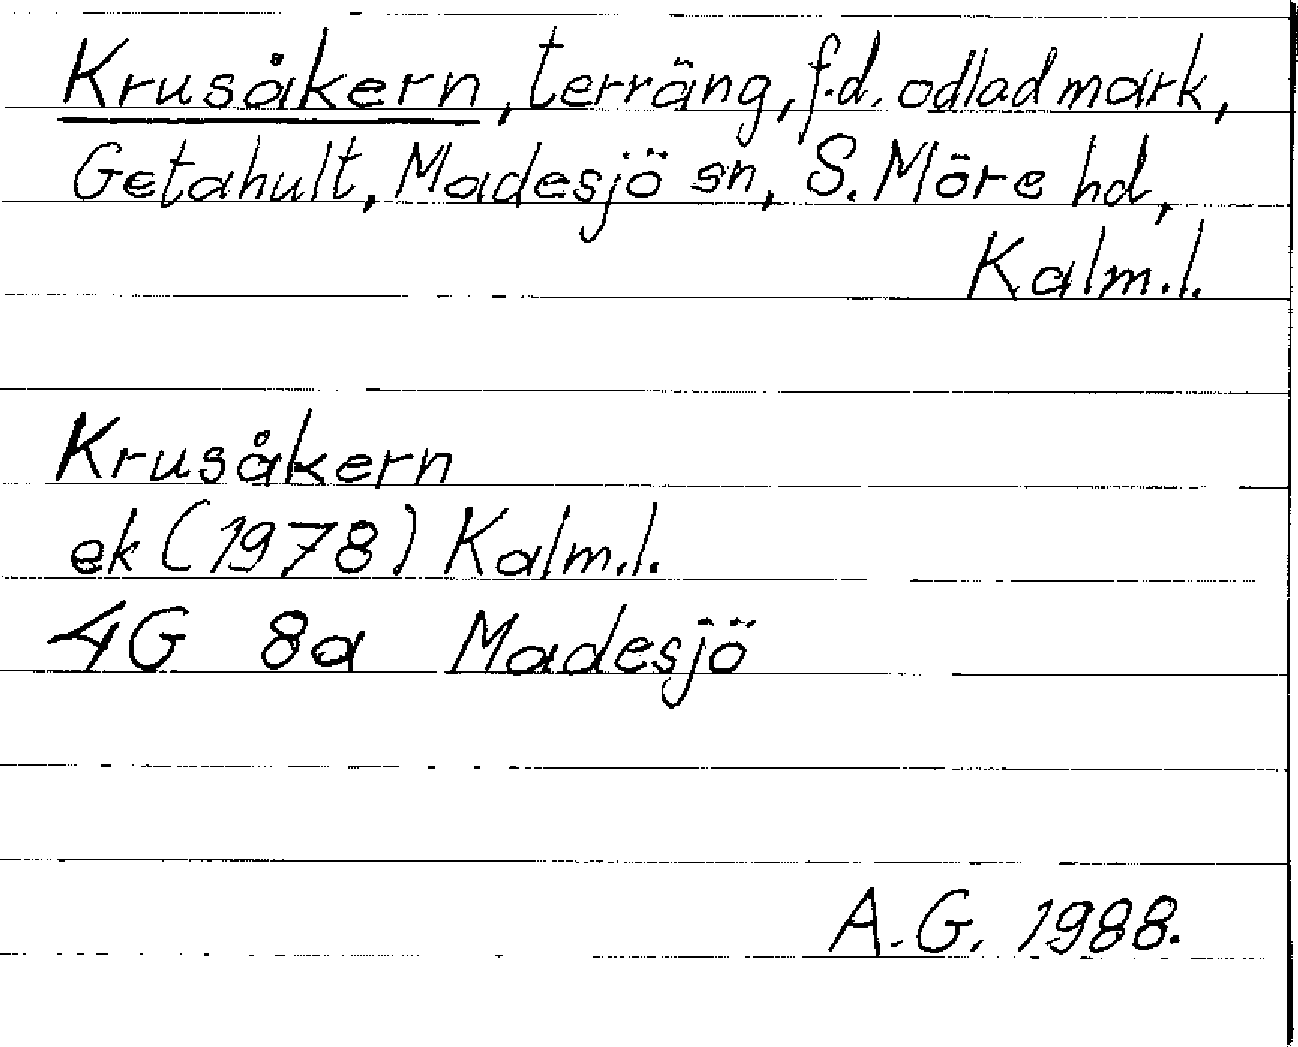 Krusåkern, terräng, f.d. odlad mark,
Getahult, Madesjö sn, S. Möre hd,
Kalm.l.
Krusåkern
ek (1978) Kalm.l.
4G 8a Madesjö
A.G. 1988.